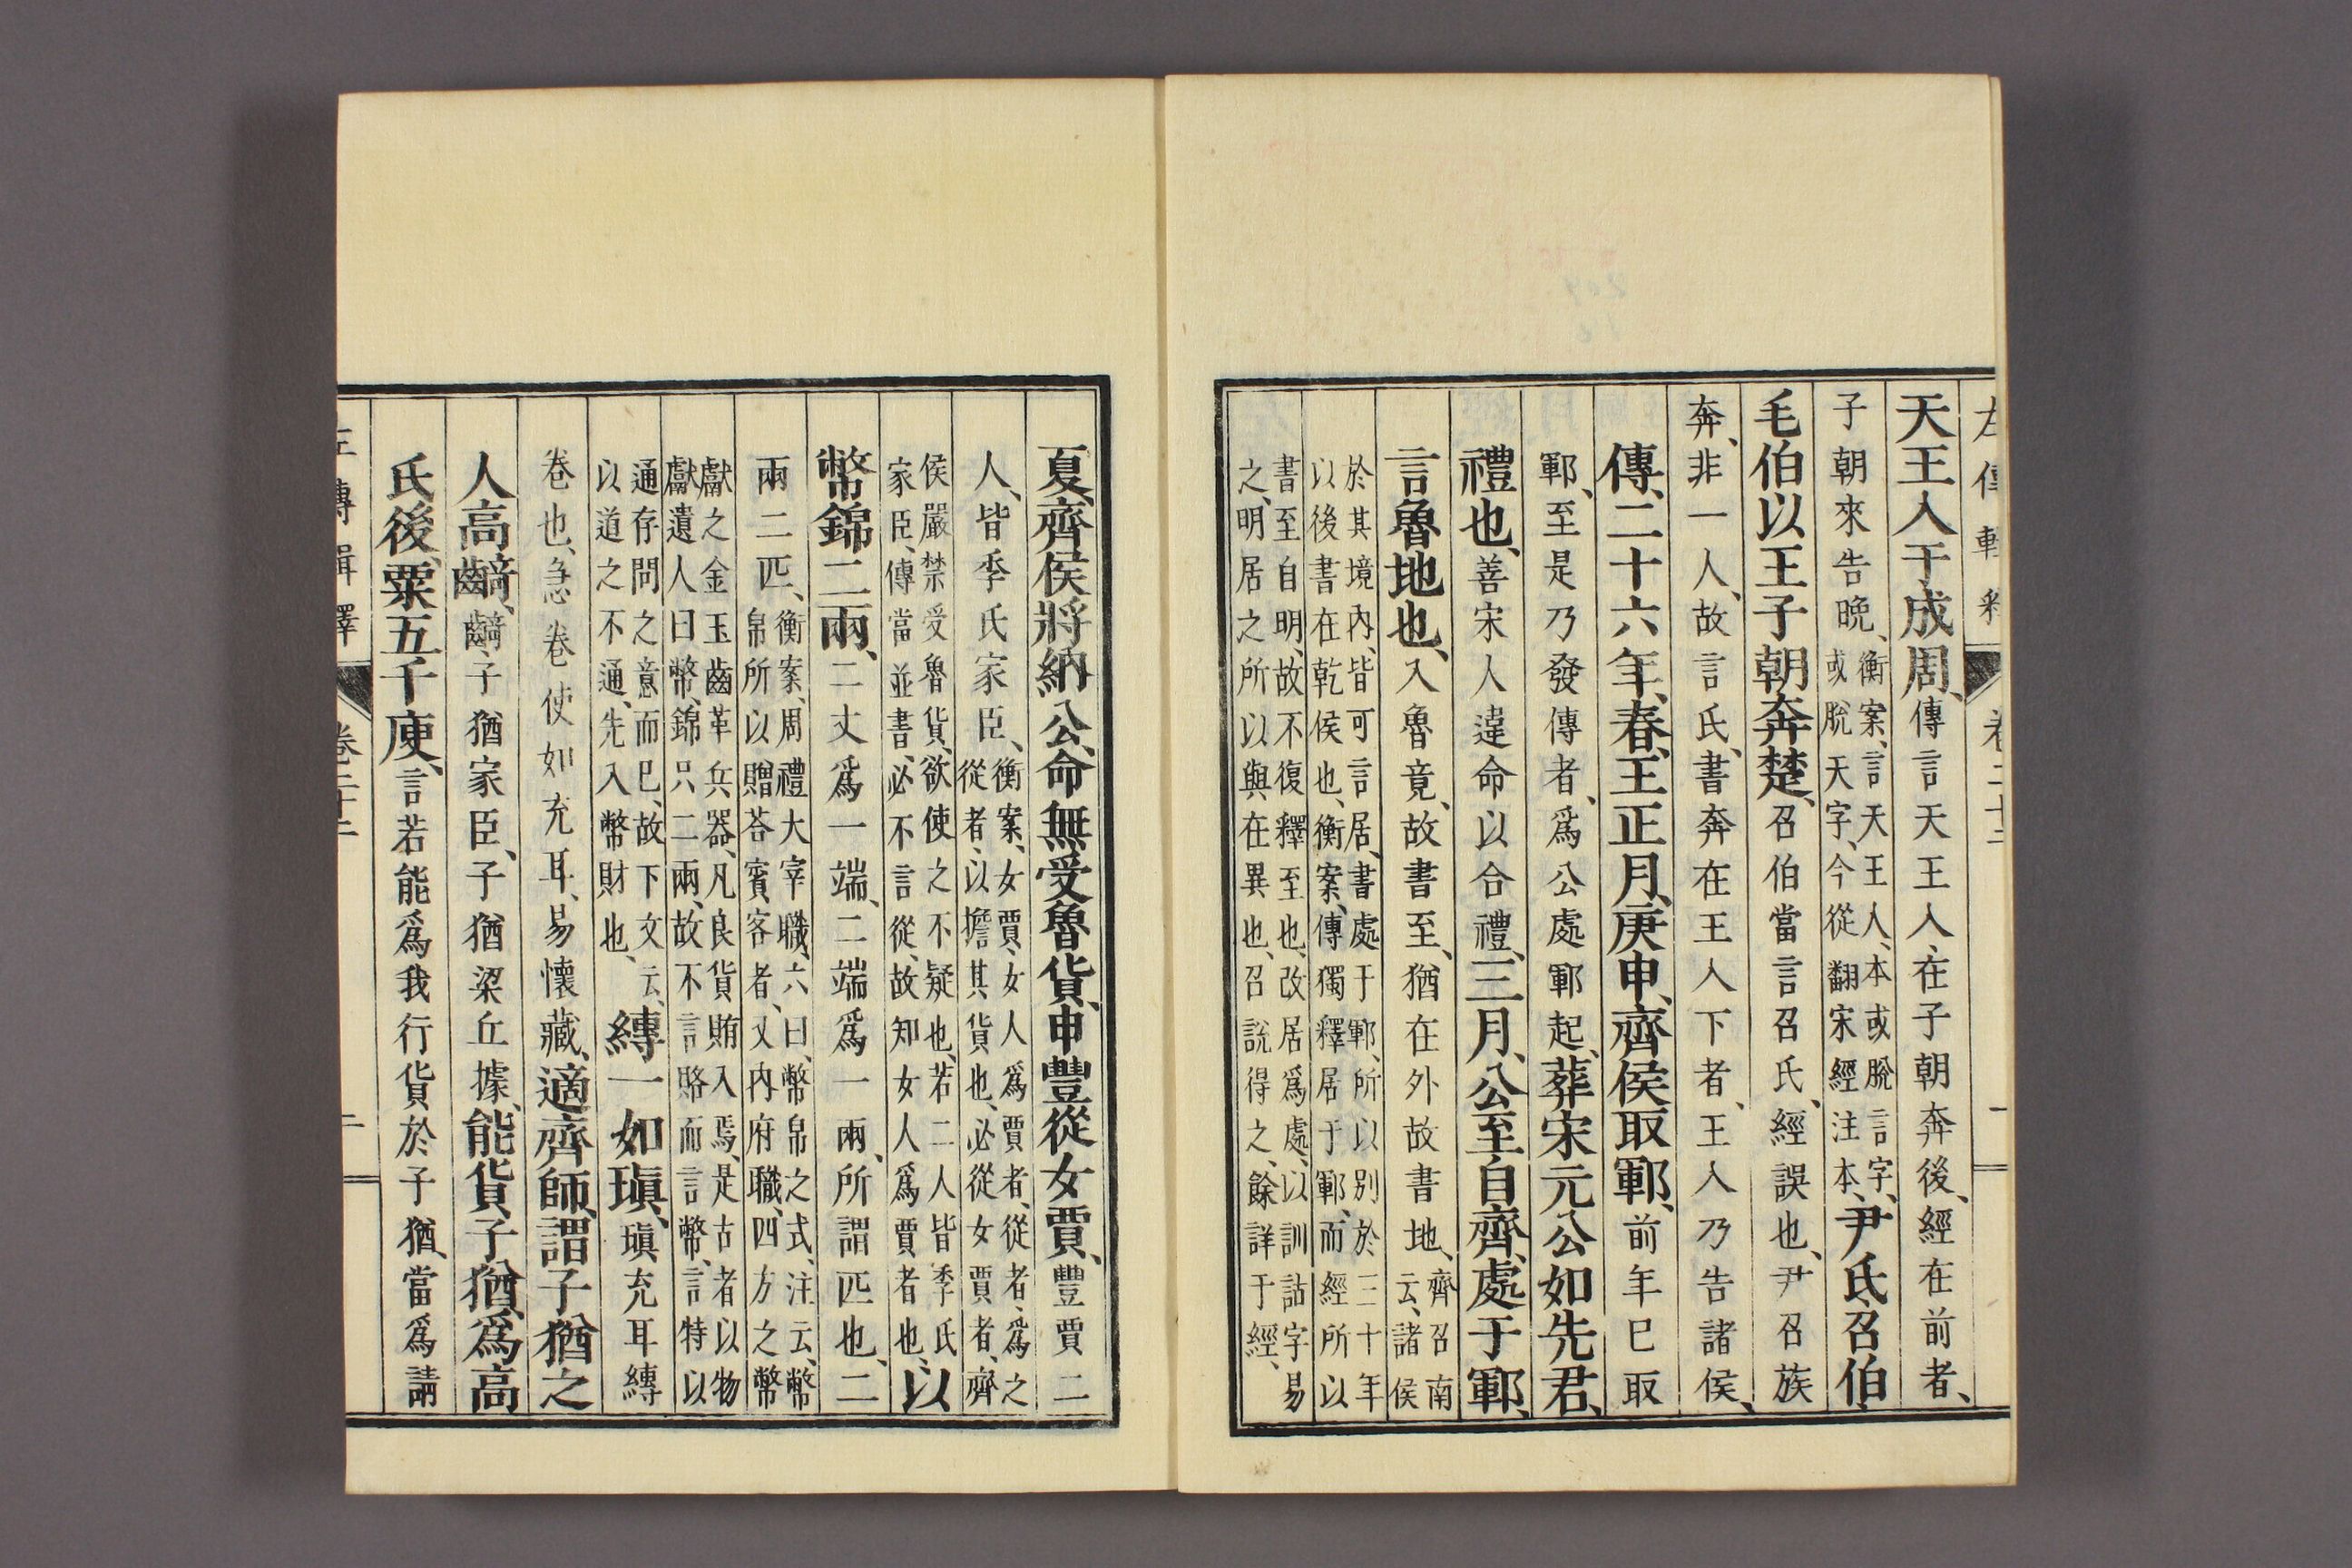 左傳輯釋 卷二十二 一
天王入于成周、傳言天王入、在子朝奔後、經在前者、
子朝來告晚、衡案、言天王人、本或脫言字、或脫天字、今從翻宋經注本、尹氏召伯
毛伯以王子朝奔楚、召伯當言召氏、經誤也、尹召族
奔、非一人、故言氏、書奔在王入下者、王入乃告諸侯、
傳、二十六年、春、王正月、庚申、齊侯取鄆、前年巳取
鄆、至是乃發傳者、爲公處鄆起、葬宋元公如先君、
禮也、善宋人違命以合禮、三月、公至自齊、處于鄆、
言魯地也、入魯竟、故書至、猶在外故書地、齊召南云、諸侯
於其境內、皆可言居、書處于鄆、所以別於三十年
以後書在乾侯也、衡案、傳獨釋居于鄆、而經所以
書至自明、故不復釋至也、改居爲處、以訓詁字易
之、明居之所以與在異也、召說得之、餘詳于經、
夏、齊侯將納公、命無受魯貨、申豐從女賈、豐賈二
人、皆季氏家臣、衡案、女賈、女人爲賈者、從者、爲之從者、以擔其貨也、必從女賈者、齊
侯嚴禁受魯貨、欲使之不疑也、若二人皆季氏家臣、傳當並書、必不言從、故知女人爲賈者也、以
幣錦二兩、二丈爲一端、二端爲一兩、所謂匹也、二
兩二匹、衡案、周禮大宰職、六曰、幣帛之式、注云、幣帛所以贈荅賓客者、又內府職、四方之幣
獻之金玉齒革兵器、凡良貨賄入焉、是古者以物
獻遺人曰幣、錦只二兩、故不言賂而言幣、言特以
通存問之意而巳、故下文云、以道之不通、先入幣財也、縳一如瑱、瑱充耳縳
卷也、急卷使如充耳、易懷藏、適齊師、謂子猶之
人高齮、齮、子猶家臣、子猶梁丘據、能貨子猶、爲高
氏後、粟五千庾、言若能爲我行貨於子猶、當爲請
左傳輯釋 卷二十二 二